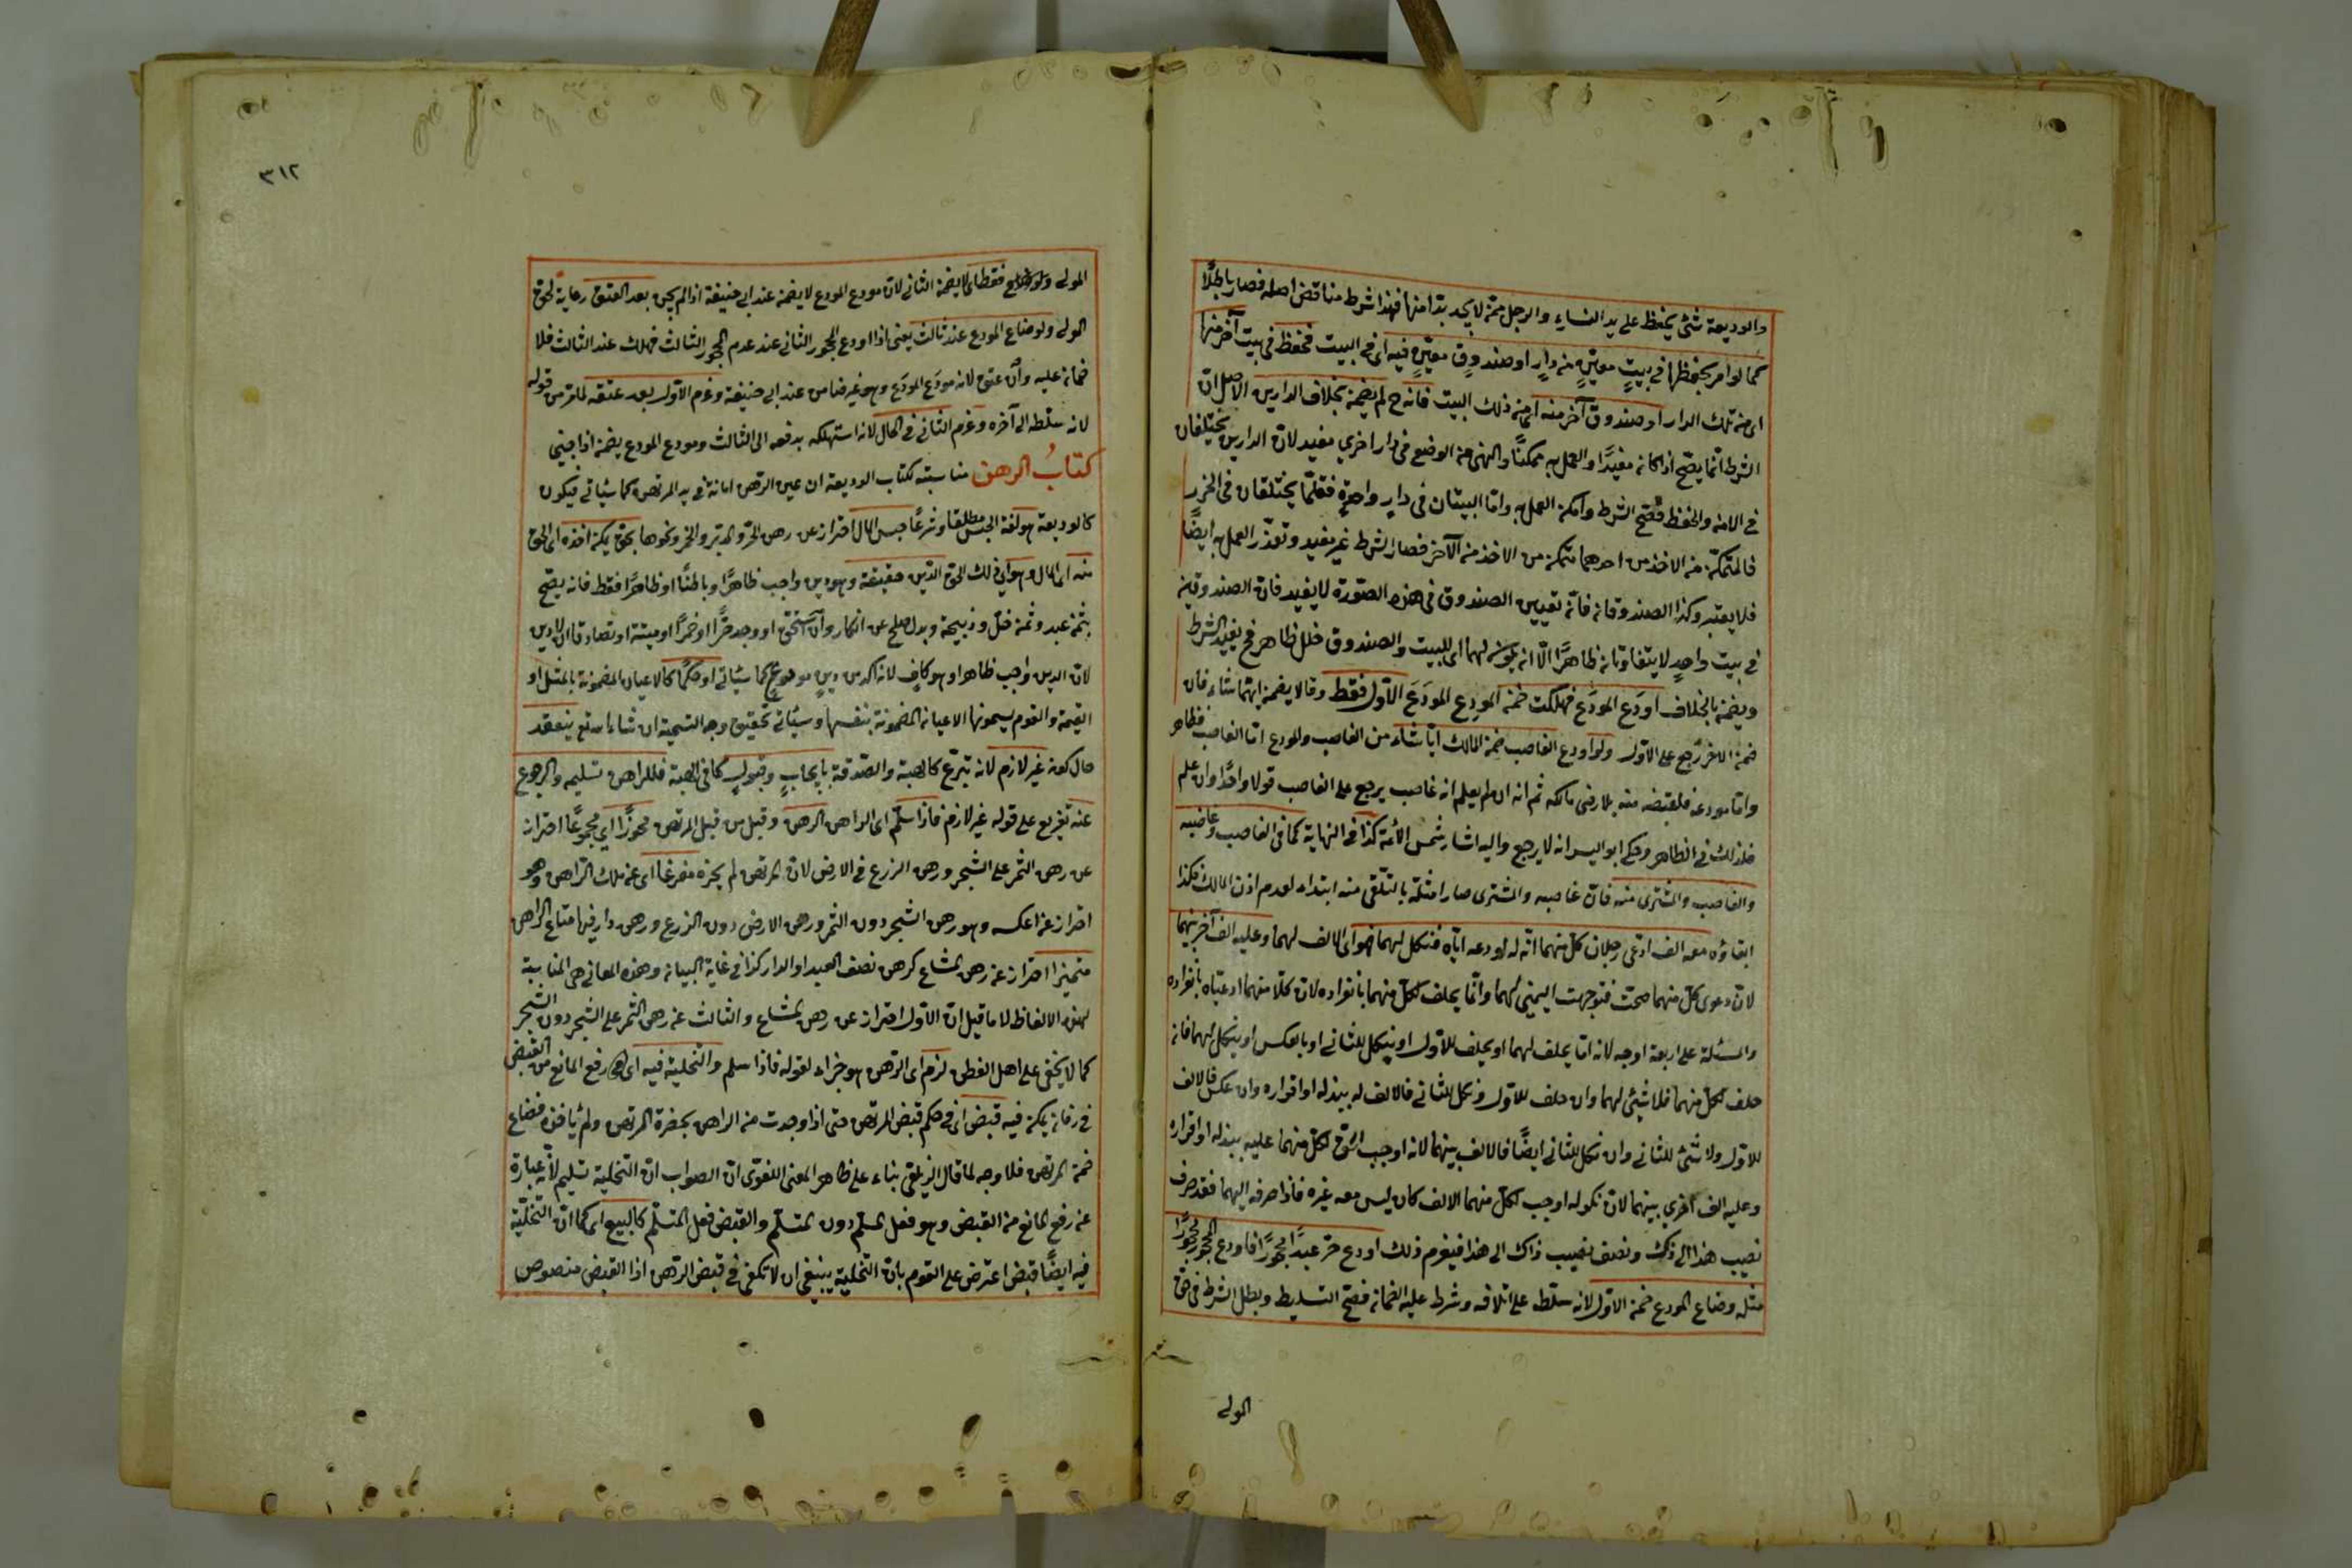 والوديعة شئ يحفظ على يد النساء والرجل ممن لا يجد بدا منها فهذا شرط مناقض اصله فصار باطلًا
كما لو امر بحفظها في بيتٍ معيّنٍ من دارٍ او صندوقٍ معيّنٍ فيه اى فى البيت فحفظ في بيت آخر منها
اى من تلك الدار او صندوق آخر منه اى من ذلك البيت فانه ح لم يضمن بخلاف الدارين الاصل انّ
الشرط انّما يصحّ اذا كان مفيدًا والعمل به ممكنًا والنهى عن الوضع في دار اخرى مفيد لانّ الدارين يختلفان
في الامن والحفظ فصح الشرط وامكن العمل به وامّا البيتان في دارٍ واحدةٍ فقلّما يختلفان في الحرز
فالمتمكّن من الاخذ من احدهما متمكن من الاخذ من الآخر فصار الشرط غير مفيد وتعذّر العمل به ايضًا
فلا يعتبر وكذا الصندوقان فانّ تعيين الصندوق في هذه الصّورة لا يفيد فانّ الصندوقين
في بيت واحدٍ لا يتفاوتان ظاهرًا الّا ان يكون لهما اى للبيت والصندوق خلل ظاهر فح يفيد الشرط
ويضمن بالخلاف اودَع المودَع فهلكت ضمن المودِع المودَعَ الاوّل فقط وقالا يضمن ايّهما شاء فان
ضمن الآخر رجع على الاوّل ولو اودع الغاصب ضمن المالك ايّا شاء من الغاصب والمودع امّا الغاصب فظاهر
وامّا مودعه فلقبضه منه بلا رضى مالكه ثم انه ان لم يعلم انه غاصب يرجع على الغاصب قولا واحدًا وان علم
فكذلك في الظاهر وحكى ابو اليسر انه لا يرجع واليه اشار شمس الأئمة كذا في النهاية كما في الغاصب وغاصبه
والغاصب والمشترى منه فانّ غاصبه والمشترى صارا مثله بالتلقّى منه ابتداء لعدم اذن المالك فكذا
ابقاؤه معه الف ادّعى رجلان كلّ منهما انّه له اودعه ايّاه فنكل لهما فهو اى الالف لهما وعليه الف آخر بينهما
لانّ دعوى كلّ منهما صحت فتوجهت اليمين لهما وانّما يحلف لكلّ منهما بانفراده لانّ كلّا منهما ادعياه بانفراده
والمسئلة على اربعة اوجه لانه امّا يحلف لهما او يحلف للاوّل او ينكل للثاني او بالعكس او ينكل لهما فان
حلف لكلّ منهما فلا شئ لهما وان حلف للاوّل ونكل للثاني فالالف له ببذله او اقراره وان عكس فالالف
للاوّل ولا شئ للثاني وان نكل للثاني ايضًا فالالف بينهما لانه اوجب الحق لكلّ منهما عليه ببذله او اقراره
وعليه الف اخرى بينهما لانّ نكوله اوجب لكلّ منهما الالف كان ليس معه غيره فاذا صرفه اليهما فقد صرف
نصيب هذا الى ذاك ونصف نصيب ذاك الى هذا فيغرم ذلك اودع حرّ عبدًا محجورًا فاودع المحجور محجورًا
مثله وضاع المودع ضمن الاوّل لانه سلّطه على اتلافه وشرط عليه الضمان فصح التسليط وبطل الشرط في حق
المولى
٣١٢
المولى فقط اى لا يضمن الثاني لانّ مودع المودع لا يضمن عند ابي حنيفة اذا لم يكن بعد العتق رعاية لحق
المولى ولو ضاع المودع عند ثالث يعنى اذا اودع المحجور الثاني عند عدم المحجور الثالث فهلك عند الثالث فلا
ضمان عليه وان عتق لانه مودَع المودَع وهو غير ضامن عند ابي حنيفة وغرم الاوّل بعد عتقه لما مرّ من قوله
لانه سلّطه الى آخره وغرم الثاني في الحال لانه استهلكه بدفعه الى الثالث ومودع المودع يضمن اذا جنى
كتابُ الرهن مناسبته لكتاب الوديعة ان عين الرّهن امانة في يد المرتهن كما سيأتي فيكون
كالوديعة هو لغة الحبس مطلقا وشرعًا حبس المال احتراز عن رهن الحرّ والمدبّر والخمر ونحوها بحق يمكن اخذه اى الحق
منه اى المال وهو اى ذلك الحق الدّين حقيقة وهو دين واجب ظاهرًا وباطنًا او ظاهرًا فقط فانه يصحّ
بثمن عبد وثمن خلّ وذبيحة وبدل صلح عن انكار وان استحق او وجد حرًّا او خمرًا او ميتة او تصادقا ان لا دين
لانّ الدين واجب ظاهرا وهو كافٍ لانه آكد من دينٍ موعودٍ كما سيأتي او حكمًا كالاعيان المضمونة بالمثل او
القيمة والقوم يسمونها الاعيان المضمونة بنفسها وسيأتي تحقيق وجه التسمية ان شاء الله تع ينعقد
حال كونه غير لازم لانه تبرّع كالهبة والصّدقة بايجابٍ وقبولٍ كما في الهبة فللراهن تسليمه والرجوع
عنه تفريع على قوله غير لازم فاذا سلّم اى الراهن الرهن وقبل من قبل المرتهن محوزًا اى مجموعًا احتراز
عن رهن الثمر على الشجر ورهن الزرع في الارض لانّ المرتهن لم يحزه مفرغا اى عن ملك الرّاهن وهو
احتراز عن عكسه وهو رهن الشجر دون الثمر ورهن الارض دون الزرع ورهن دار فيها متاع الراهن
متميزا احتراز عن رهن المشاع كرهن نصف العبد او الدار كذا في غاية البيان وهذه المعاني هى المناسبة
لهذه الالفاظ لا ما قيل انّ الاوّل احتراز عن رهن المشاع والثالث عن رهن الثمر على الشجر دون الشجر
كما لا يخفى على اهل الفطن لزم اى الرّهن هو جزاء لقوله فاذا سلم والتخلية فيه اى هى رفع المانع من القبض
في زمان يمكن فيه قبض اى في حكم قبض المرتهن حتى اذا وجدت من الراهن بحضرة المرتهن ولم يأخذه فضاع
ضمن المرتهن فلا وجه لما قال الزيلعى بناء على ظاهر المعنى اللغوى انّ الصواب انّ التخلية تسليم لانّه عبارة
عن رفع المانع من القبض وهو فعل المسلّم دون المتسلّم والقبض فعل المتسلّم كالبيع اى كما انّ التخلية
فيه ايضًا قبض اعترض على القوم بانّ التخلية ينبغي ان لا تكفى في قبض الرّهن اذا القبض منصوص